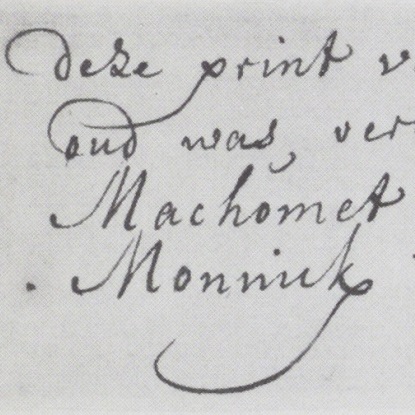 deze print v
oud was, ver
Machomet
. Monnik